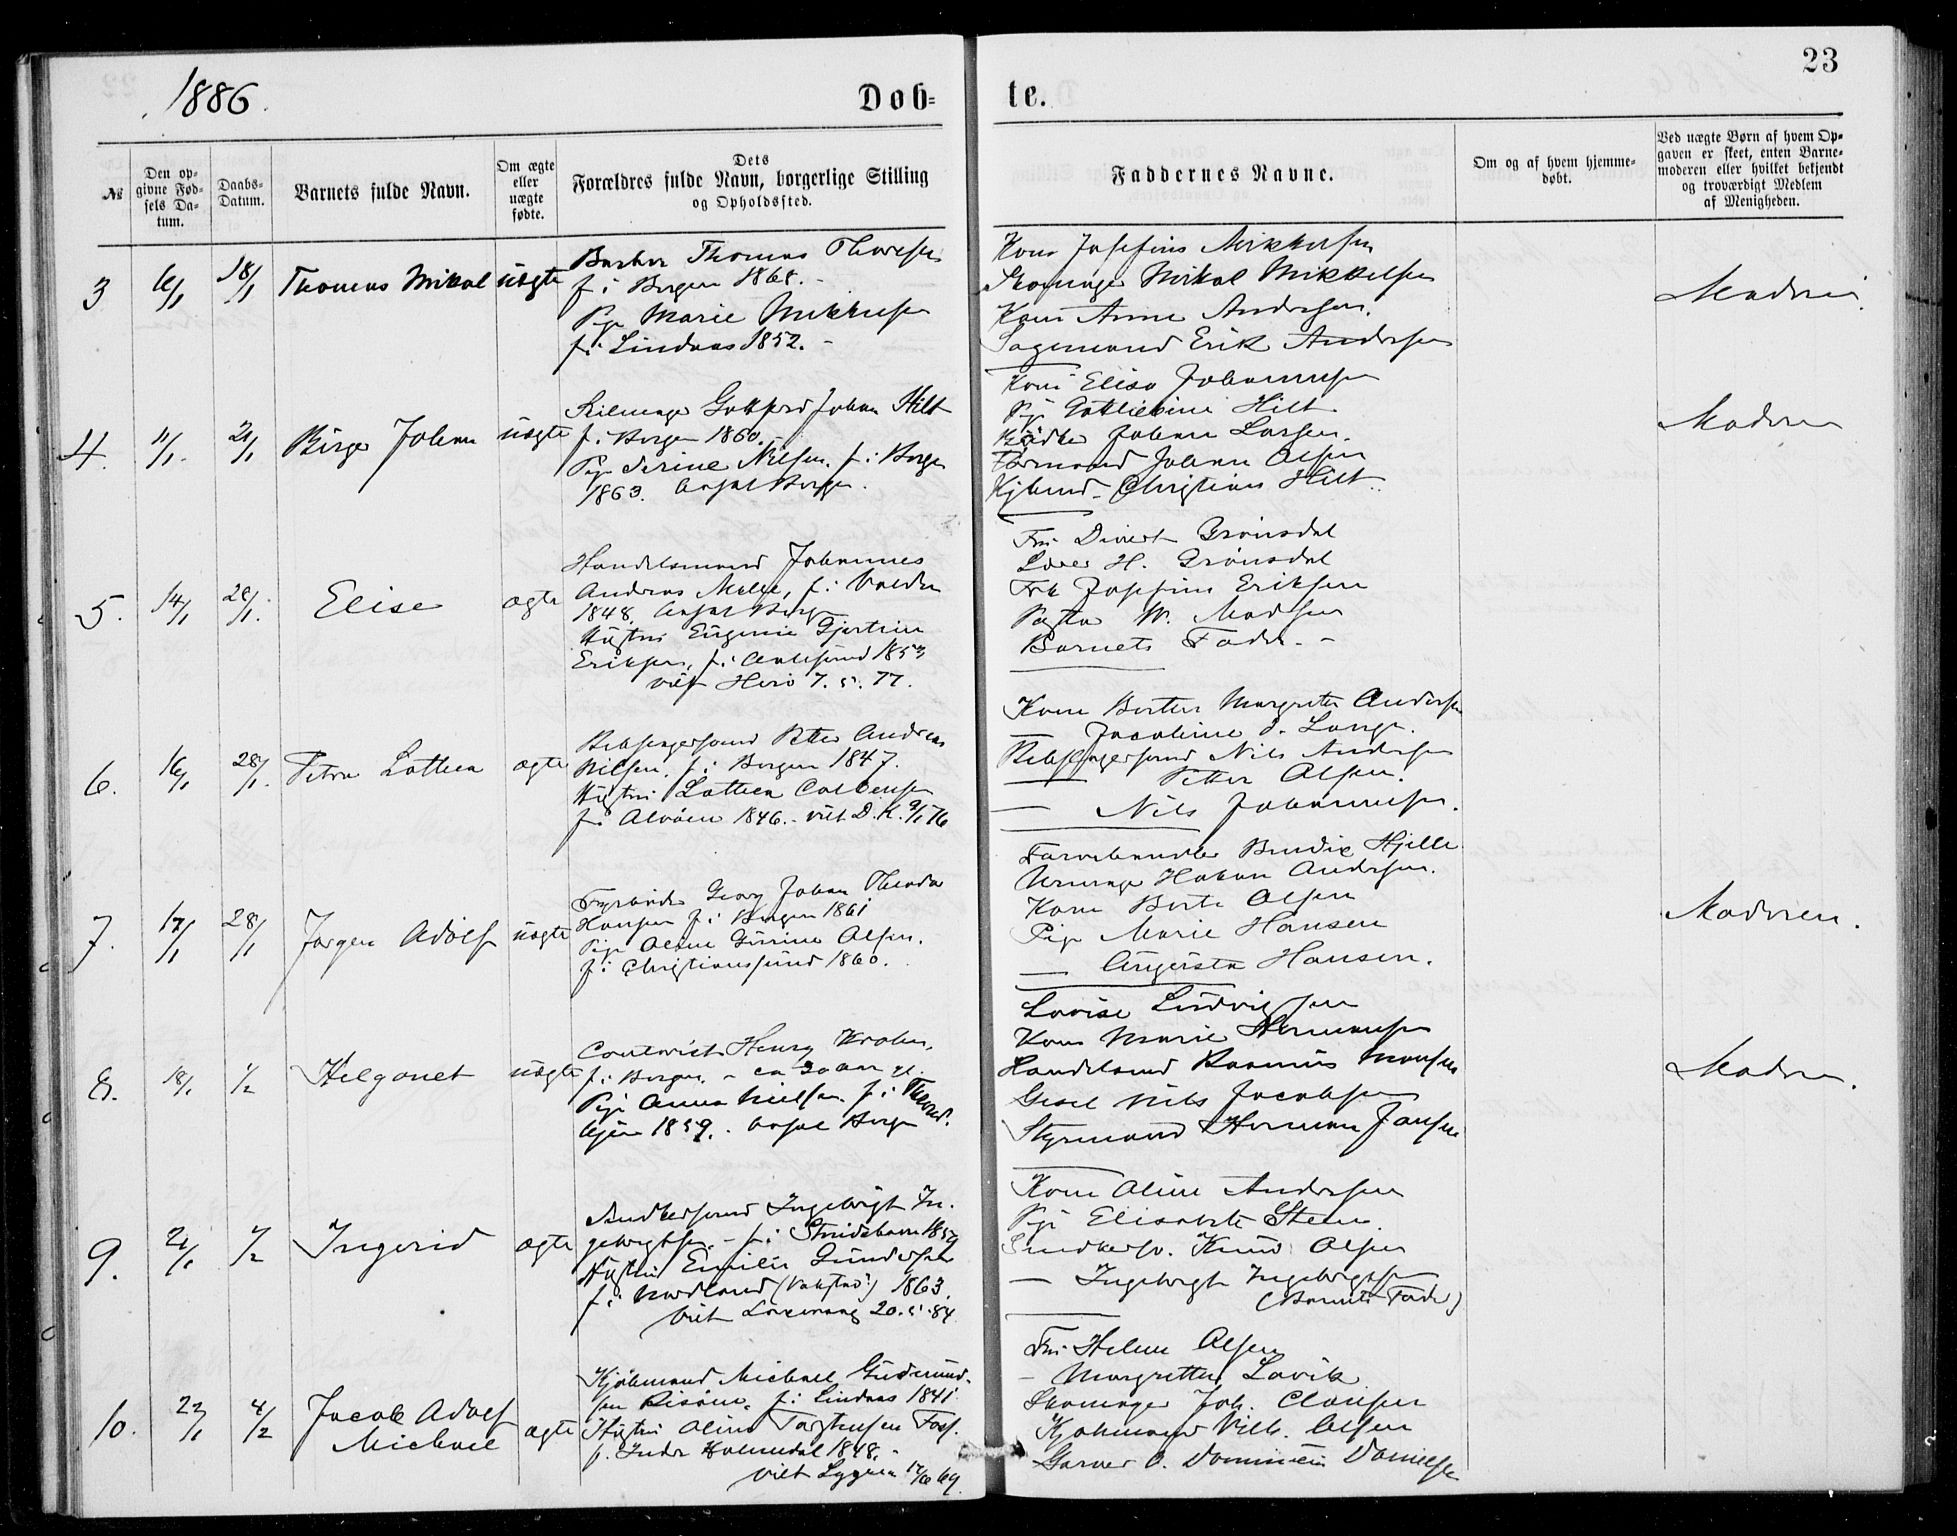 1886.
Døb-
te.
23
№
Den op-
givne Fød-
sels Da-
tum.
Daabs-
Datum.
Barnets fulde Navn.
Om ægte
eller
uægte
fødte.
Dets
Forældres fulde Navn, borgerlige Stilling
og Opholdssted.
Faddernes Navne.
Om og af hvem hjemme-
døbt.
Ved uægte Børn af hvem Op-
gaven er skeet, enten Barne-
moderen eller hvilket bekjendt
og troværdigt Medlem
af Menigheden.
3
6/1
18/1
Thomas Mikal
uægte
Thomas Thoresen
f. i Bergen 1865.
Pige Marie Mikkelsen
f. i Lindaas 1852.
Kone Josefine Mikkelsen
Skomager Mikal Mikkelsen
Kone Anne Andersen.
Sagmand Erik Andersen
Moderen.
4.
11/1.
21/1
Birger Johan
uægte
Johan Hilt
f. i Bergen 1860.
Pige Serine Nilsen. f. i Bergen
1863. Bergen.
Kone Elise Johannesen
Pige Gottliebine Hilt
Johan Larsen.
Formand Johan Olsen
Christian Hilt.
Moderen
5.
14/1
28/1.
Elise
ægte
Handelsmand Johannes
Andreas f. i Volden
1848.
Hustru Eugenie Gjertine
Eriksen, f. i Aalesund 1853
viet Herø 7.5.77.
Fru Divert Grønsdal
H. Grønsdal
Frk Josefine Eriksen
Pastor W. Madsen
Barnets Fader. -
6.
16/1
28/1.
Petra Lothea
ægte
Rebslagersvend Petter Andreas
Nilsen. f. i Bergen 1847.
Hustru Lothea
f. i Alvøen 1846. - viet D. K. 9/1 76
Kone Berthe Margrethe Andersen
— Jacobine d. Lange.
Rebslagersvend Nils Andersen
— Petter Olsen.
— Nils Johannesen.
7.
17/1
28/1
Jørgen Adolf
uægte
Fyrbøder Georg Johan Theodor
Hansen f. i Bergen 1861
Pige Olsen.
f. i Christianssund 1860.
Farvehandler Bendix Hjelle
Urmager Hakon Andersen.
Kone Berte Olsen
Pige Marie Hansen
— Augusta Hansen.
Moderen.
8.
18/1
1/2
uægte
Henry Krohn.
f. i Bergen. - ca 30 aar gl.
Pige Anna Nielsen f. i Thrond-
hjem 1859. Bergen
Lovise Ludvigsen
Kone Marie Hermansen
Handelsmd Rasmus Monsen
Nils Jacobsen
Styrmand Herman Jansen
Moderen.
9.
21/1
7/2
Ingerid
ægte
Snedkersvend Ingebrigt In-
gebrigtsen. - f. i 1859
Hustru Emilie Gundersen
f. i Nordland 1863.
viet 20.5.84
Kone Oline Andersen
Pige Elisabeth Steen.
Snedkersv. Knud Olsen
— Ingebrigt Ingebrigtsen
(Barnets Fader)
10.
22/1
4/2
Jacob Adolf
Michael
ægte
Kjøbmand Michael Gudmund-
sen Risøen. f. i Lindaas 1841
Hustru Oline Torstensen Foss.
f. Indre Holmedal 1848. -
viet 17/6 69.
Fru Helene Olsen
— Margrethe Løvik
Skomager Joh. Clausen
Kjøbmand Vilh. Olsen
Garver O. Danielsen